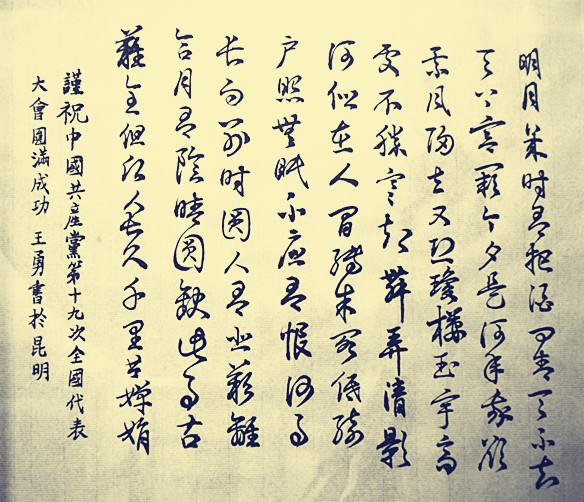 明月幾時有把酒問青天不知
天上宮闕今夕是何年我欲
乘風歸去又恐瓊樓玉宇高
處不勝寒起舞弄清影
何似在人間轉朱閣低綺
戶照無眠不應有恨何事
長向別時圓人有悲歡離
合月有陰晴圓缺此事古
難全但願人長久千里共嬋娟
謹祝中國共產黨第十九次全國代表
大會圓滿成功 王勇書於昆明